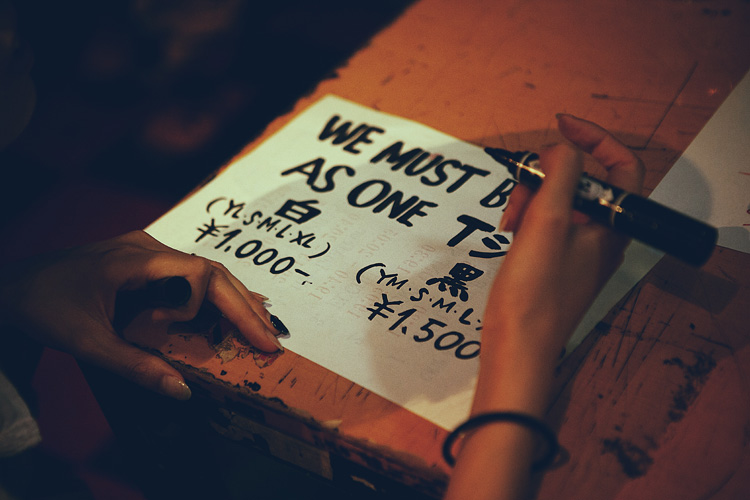 WE MUST B
AS ONE Tシ
白
(YL.S.M.L.XL)
¥1.000-
黒
(YM.S.M.L.
¥1.500